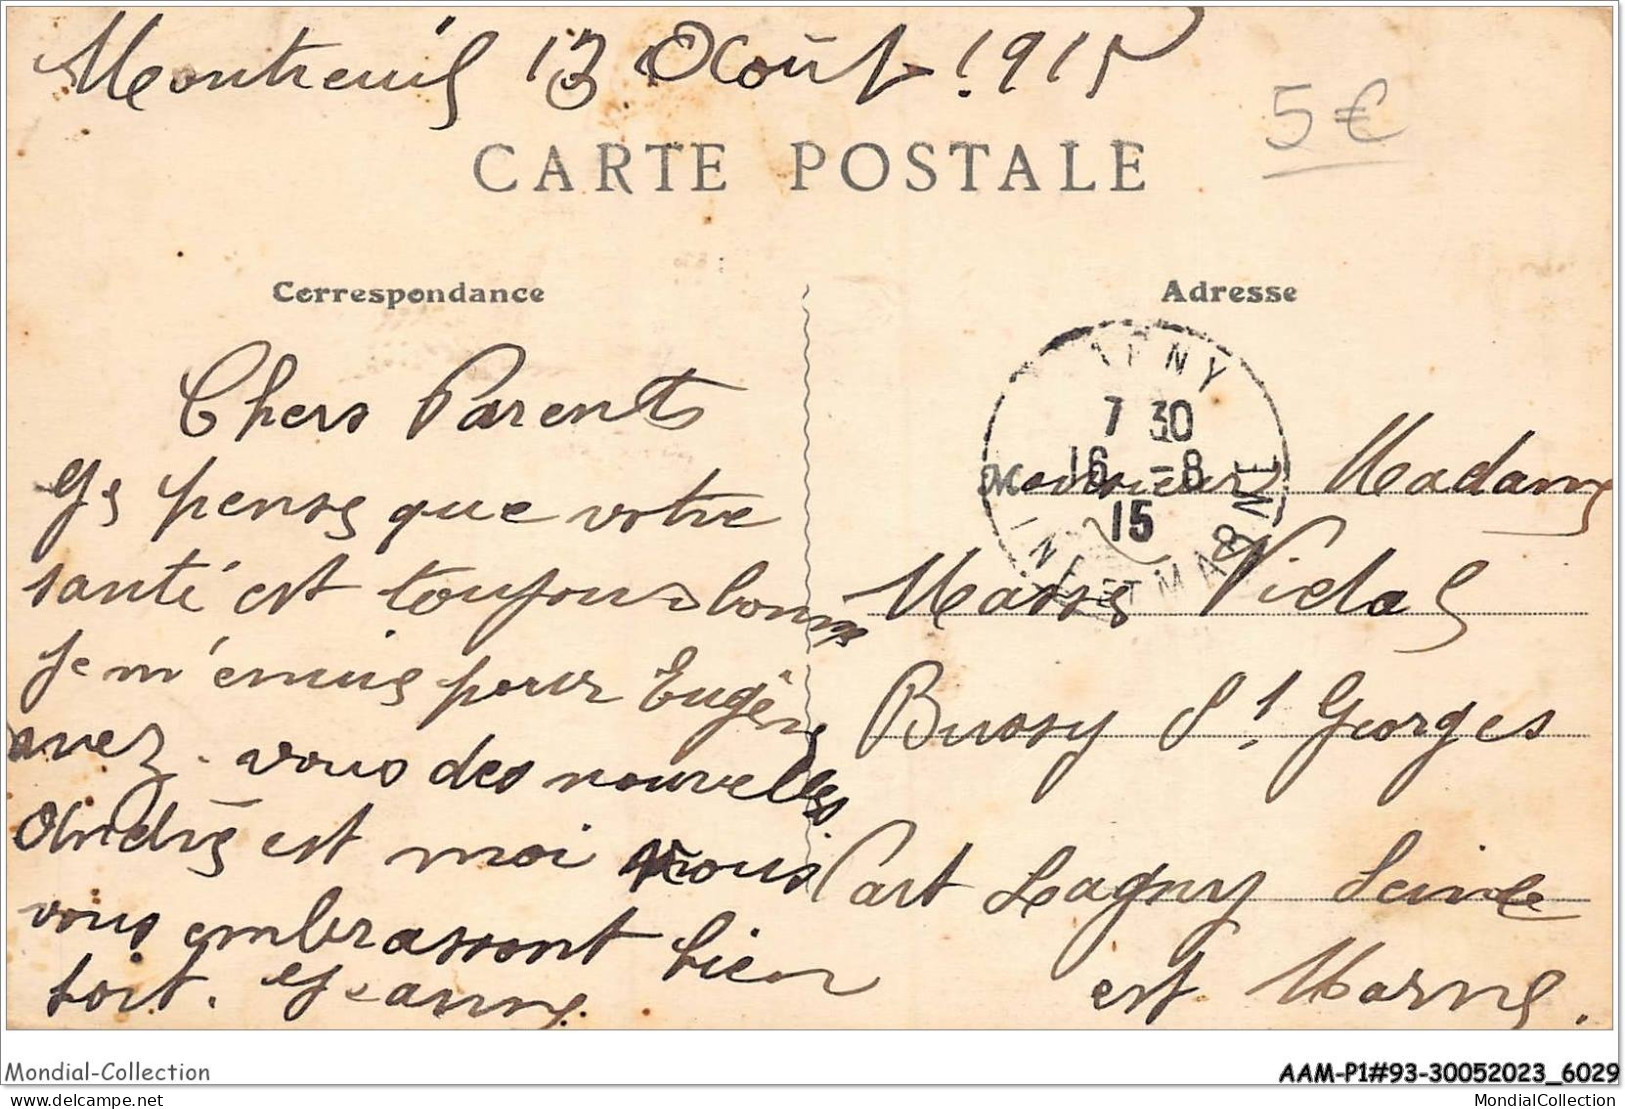 Montreuil 13 Août 1915
5€
CARTE POSTALE
Correspondance
Adresse
Chers Parents
Je pense que votre
santé est toujours bonne
Je m'ennuie pour Eugène
avez-vous des nouvelles
André est moi nous
vous embrassont bien
toit. Jeanne.
AGNY
7 30
16 -8
15
INE ET MARNE
Monsieur Madame
Masse Vidal
Bussy St Georges
Part Lagny Seine
est Marne.
Mondial-Collection
AAM-P1#93-30052023_6029
delcampe.net
MondialCollection